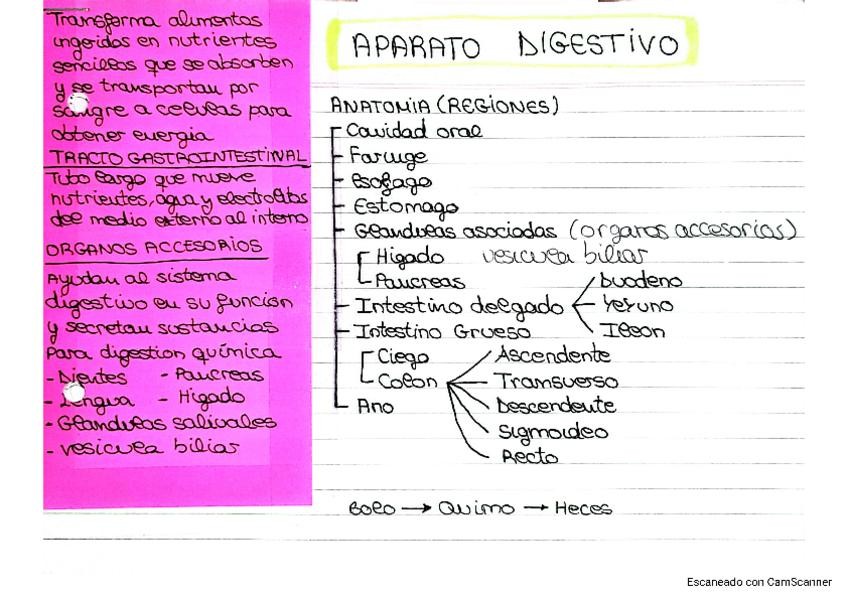 Transforma alimentos
ingeridos en nutrientes
sencillos que se absorben
y se transportan por
sangre a celulas para
obtener energia
TRACTO GASTROINTESTINAL
Tubo largo que mueve
nutrientes, agua y electrolitos
del medio externo al interno
ORGANOS ACCESORIOS
Ayudan al sistema
digestivo en su funcion
y secretan sustancias
Para digestion química
- Dientes - Pancreas
- Lengua - Higado
- Glandulas salivales
- vesicula biliar
APARATO DIGESTIVO
ANATOMIA (REGIONES)
Cavidad oral
Faringe
Esofago
Estomago
Glandulas asociadas (organos accesorios)
Higado vesicula biliar
Pancreas
Duodeno
Intestino delgado Yeyuno
Intestino Grueso Ileon
Ciego Ascendente
Colon Transverso
Ano Descendente
Sigmoideo
Recto
Bolo → Quimo → Heces
Escaneado con CamScanner